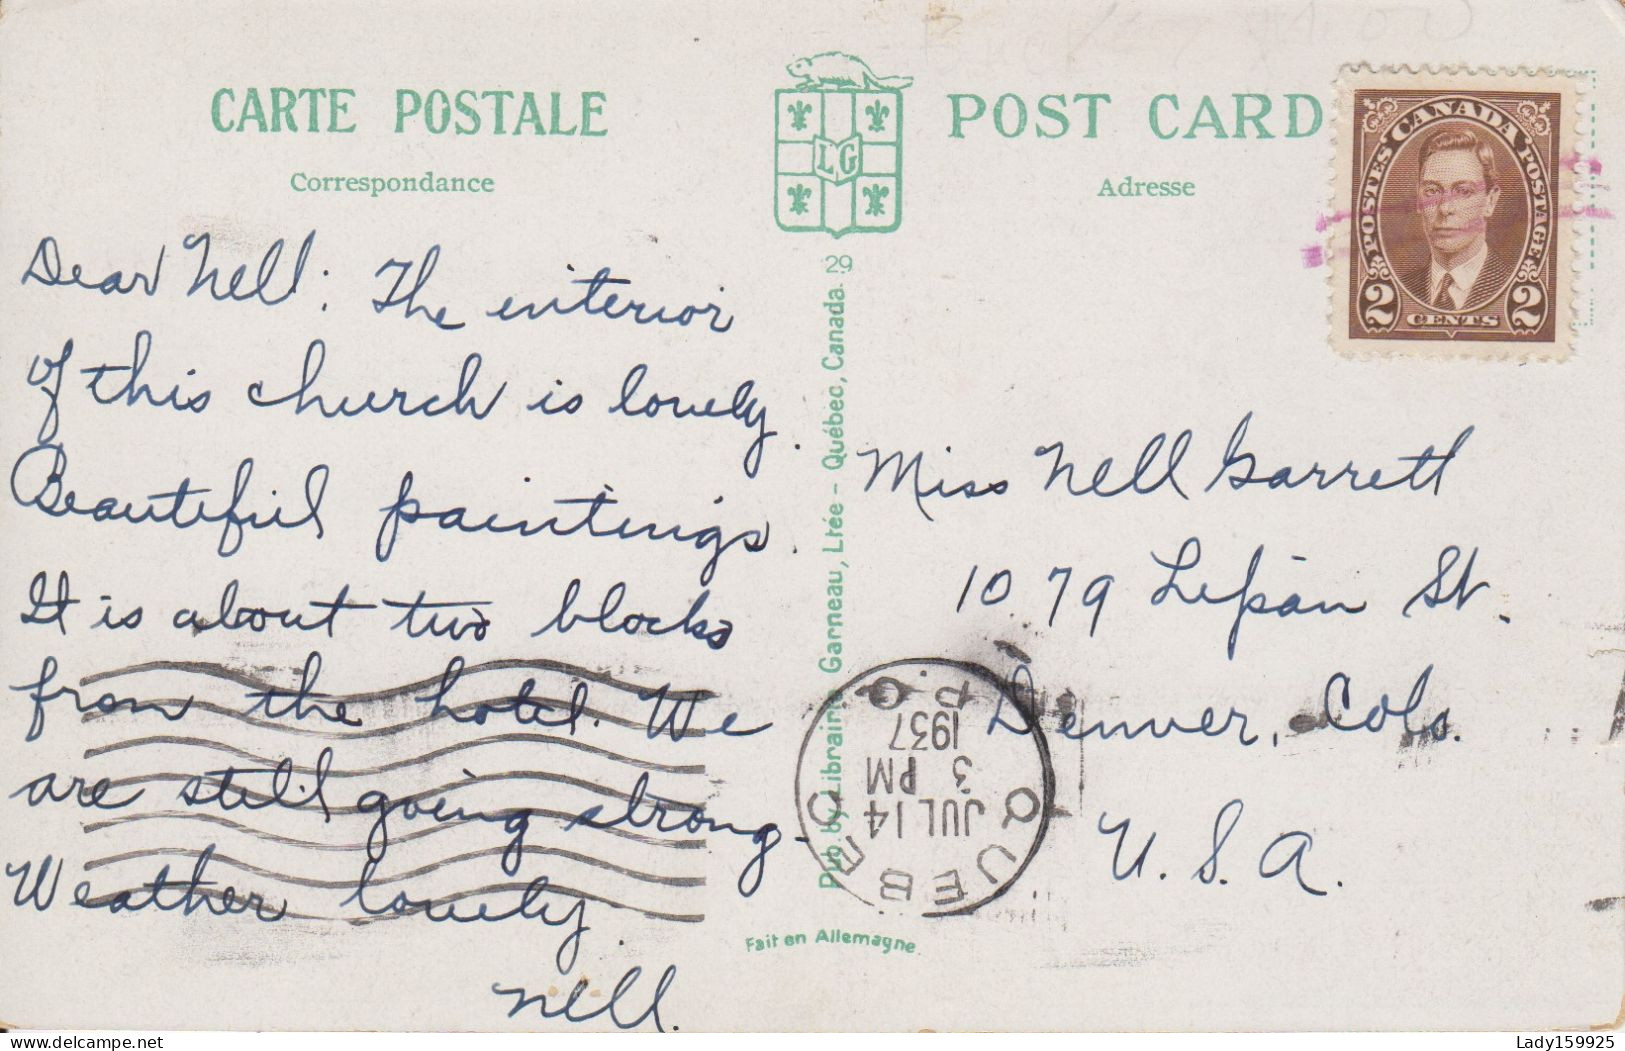 CARTE POSTALE
Correspondance
LG
POST CARD
Adresse
POSTES CANADA POSTAGE
2 CENTS 2
Dear Nell: The interior
of this church is lovely.
Beautiful paintings.
It is about two blocks
from the hotel. We
are still going strong.
Weather lovely.
Nell.
29
Pub. by Librairie Garneau, Ltée - Québec, Canada.
Fait en Allemagne
QUEBEC
JUL 14
3 PM
1937
P Q
Miss Nell Garrett
1079 Lipan St.
Denver, Colo.
U. S. A.
delcampe.net
Lady159925